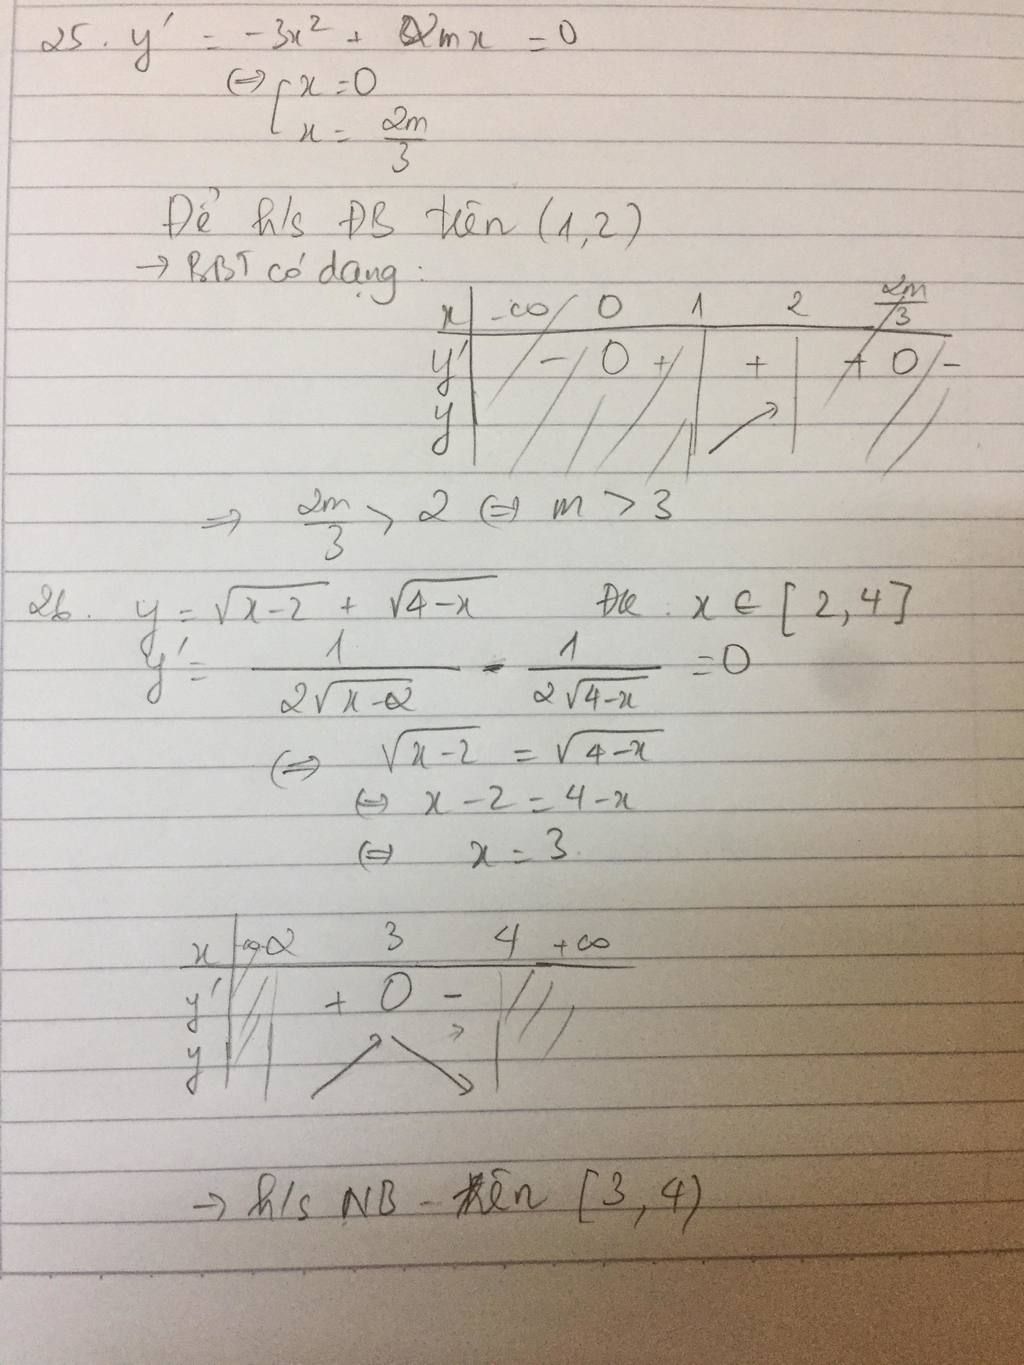 25. y' = -3x² + 2mx = 0
⇔ [ x = 0
x = 2m/3
Để h/s ĐB trên (1,2)
→ BBT có dạng :
x | -∞ 0 1 2 2m/3
y' | - 0 + + + 0 -
y | ↗
⇒ 2m/3 > 2 ⇔ m > 3
26. y = √(x-2) + √(4-x) Đk : x ∈ [2,4]
y' = 1/(2√(x-2)) - 1/(2√(4-x)) = 0
⇔ √(x-2) = √(4-x)
⇔ x - 2 = 4 - x
⇔ x = 3.
x | -∞ 2 3 4 +∞
y' | + 0 -
y | ↗ ↘
→ h/s NB trên [3,4)